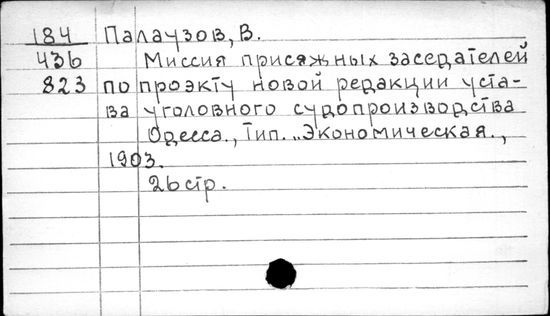 184 Палаузов, В.
436 Миссия присяжных заседателей
823 по проэкту новой редакции уста-
ва уголовного судопроизводства
Одесса., Тип. „Экономическая.,
1903.
26 стр.